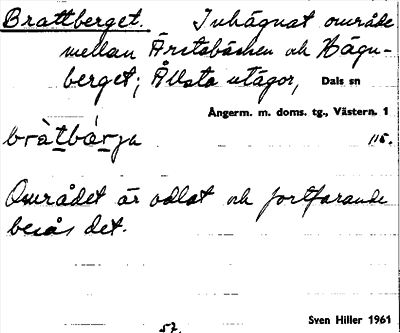 Brattberget. Inhägnat område
mellan Ärstabäcken och Hägn-
berget; Ållsta utägor, Dals sn
Ångerm. m. doms. tg., Västern. 1
bràtbárjə 115.
Området är odlat och fortfarande
besås det.
Sven Hiller 1961
57.